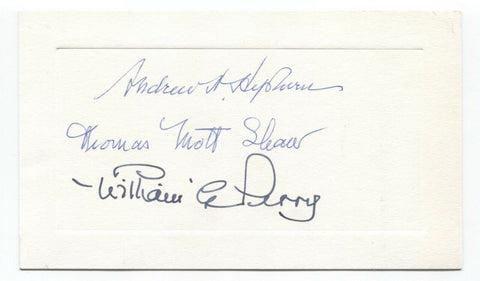 Andrew H. Hepburn
Thomas Mott Shaw
William G. Perry